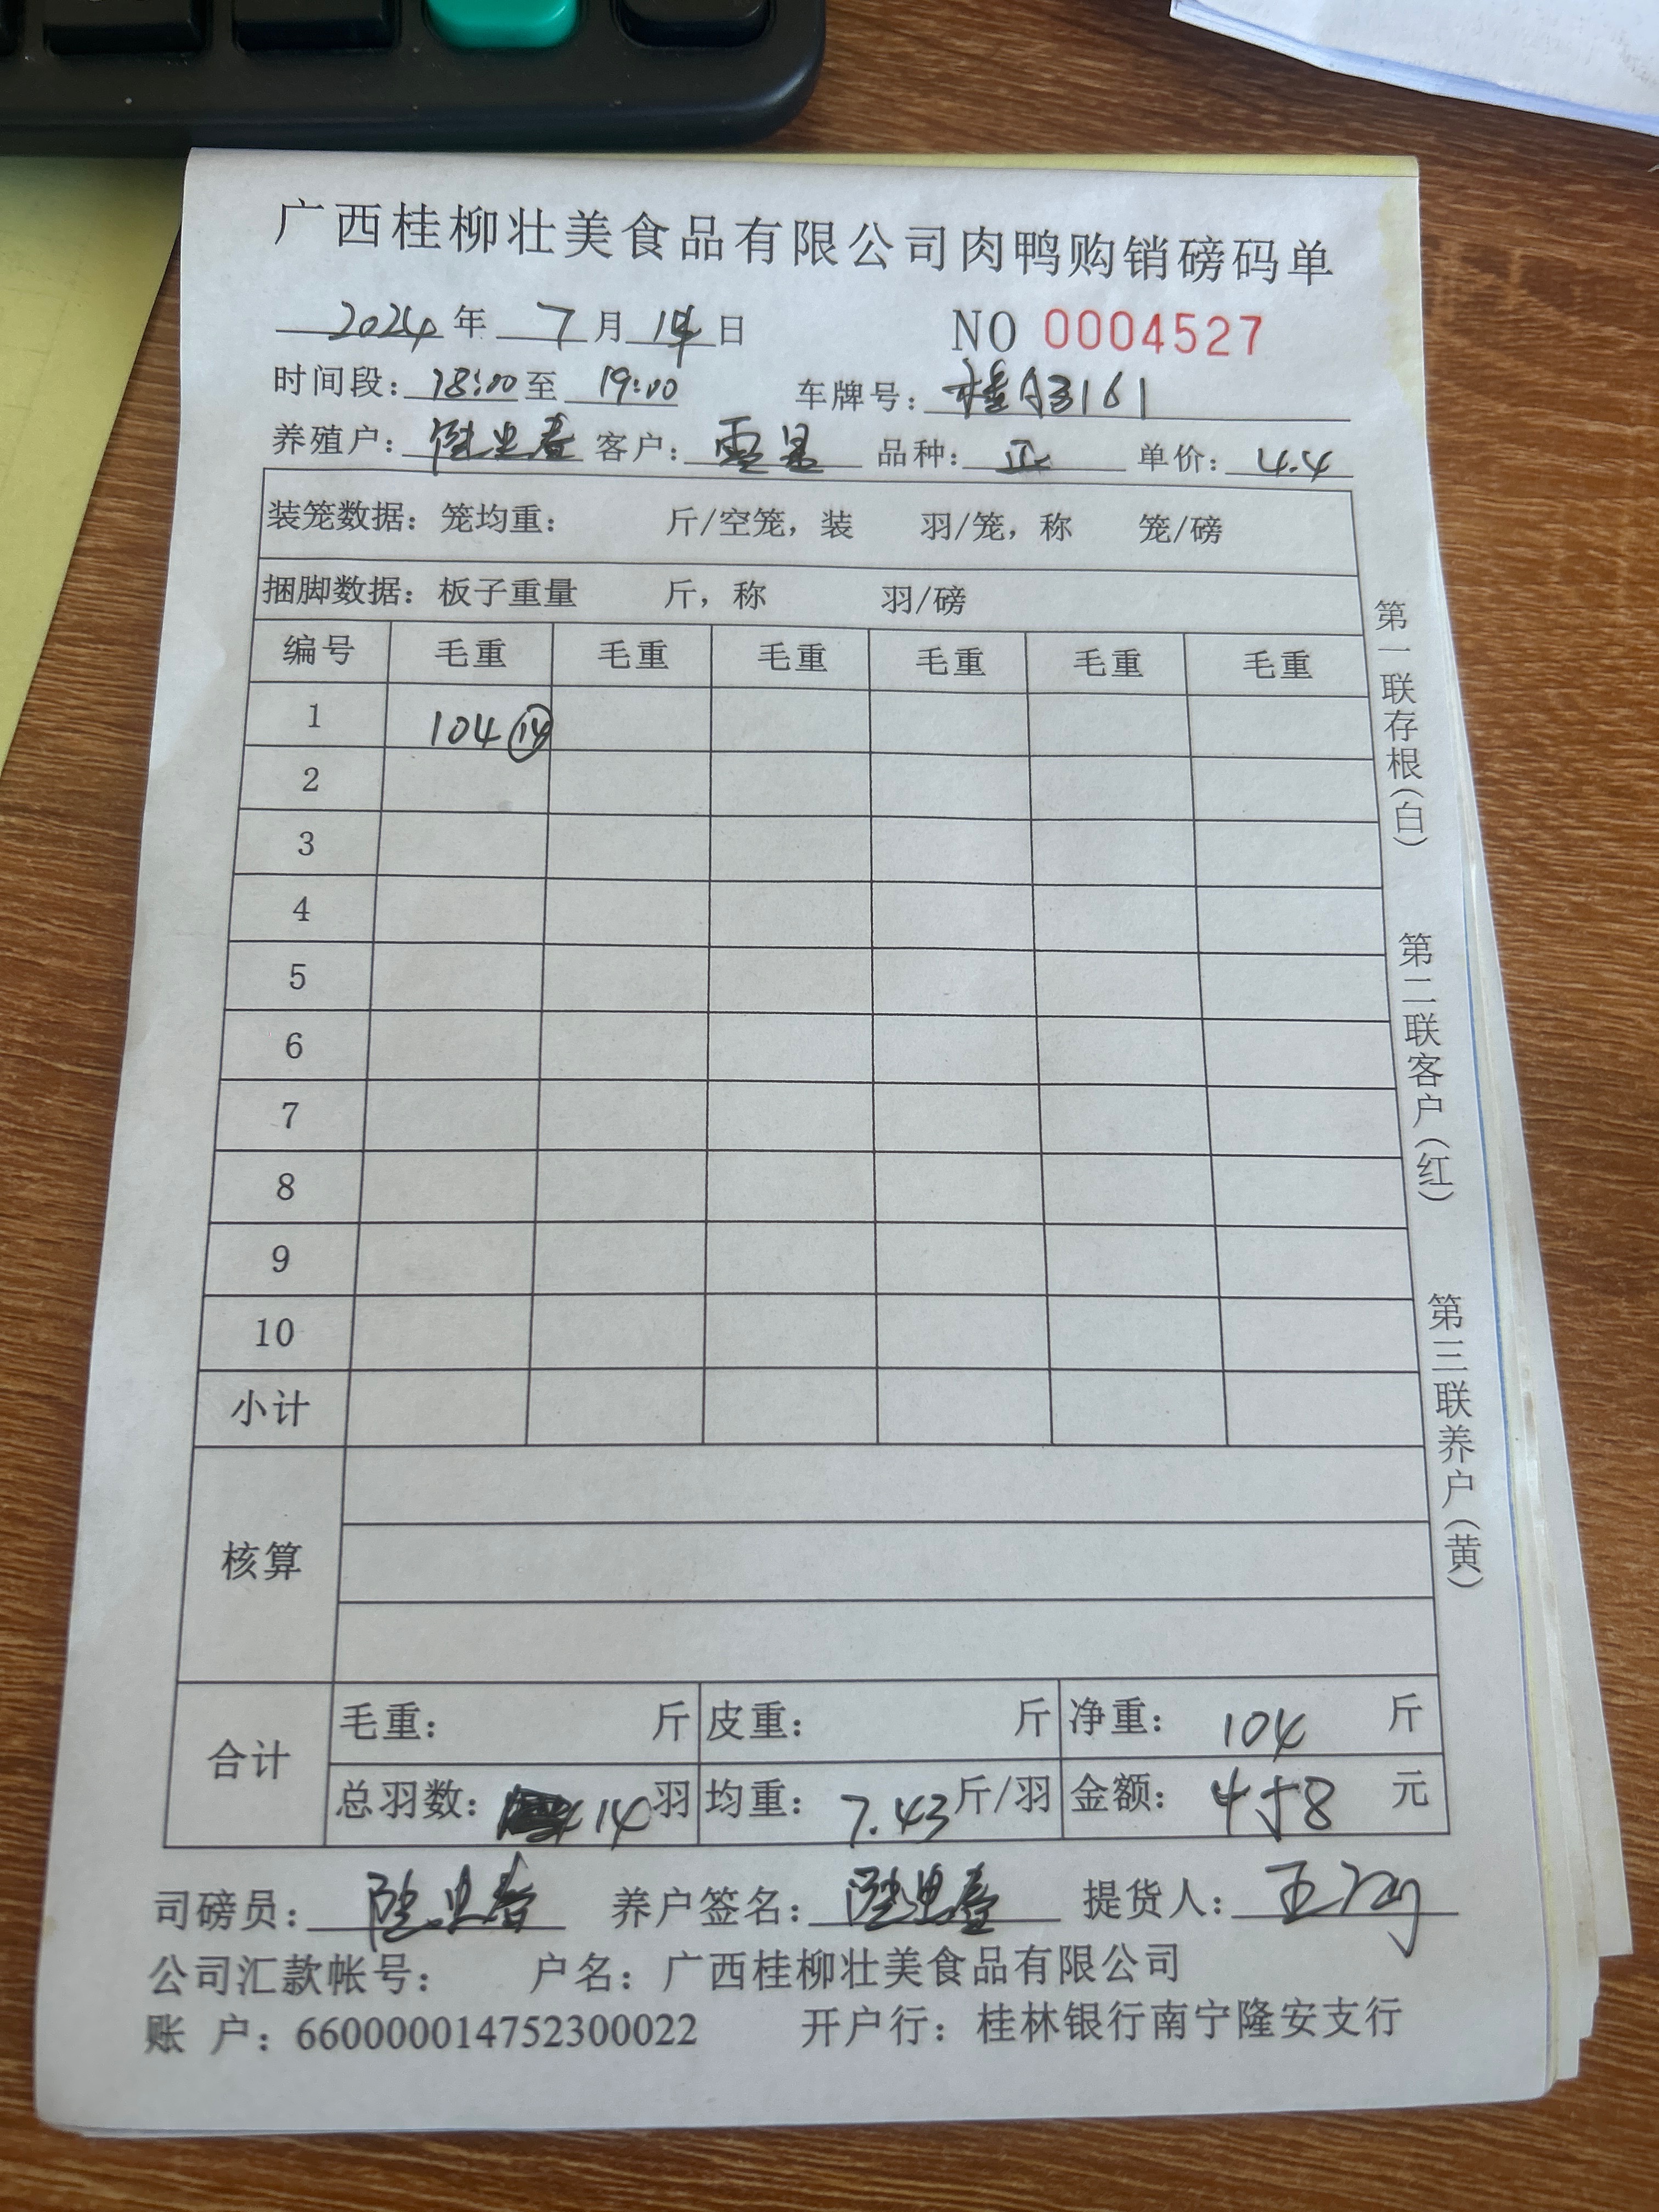 广西桂柳壮美食品有限公司肉鸭购销磅码单
2024年 7月 14日 NO 0004527
时间段：18:00至 19:00 车牌号：桂 3161
养殖户： 客户： 品种：正 单价：4.4
装笼数据：笼均重： 斤/空笼，装 羽/笼，称 笼/磅
捆脚数据：板子重量 斤，称 羽/磅
编号 毛重 毛重 毛重 毛重 毛重 毛重
1 104 14
2
3
4
5
6
7
8
9
10
小计
核算
合计 毛重： 斤 皮重： 斤 净重：104 斤
总羽数：14羽 均重：7.43斤/羽 金额：458 元
司磅员： 养户签名： 提货人：王
公司汇款帐号： 户名：广西桂柳壮美食品有限公司
账 户：660000014752300022 开户行：桂林银行南宁隆安支行
第一联存根（白）
第二联客户（红）
第三联养户（黄）